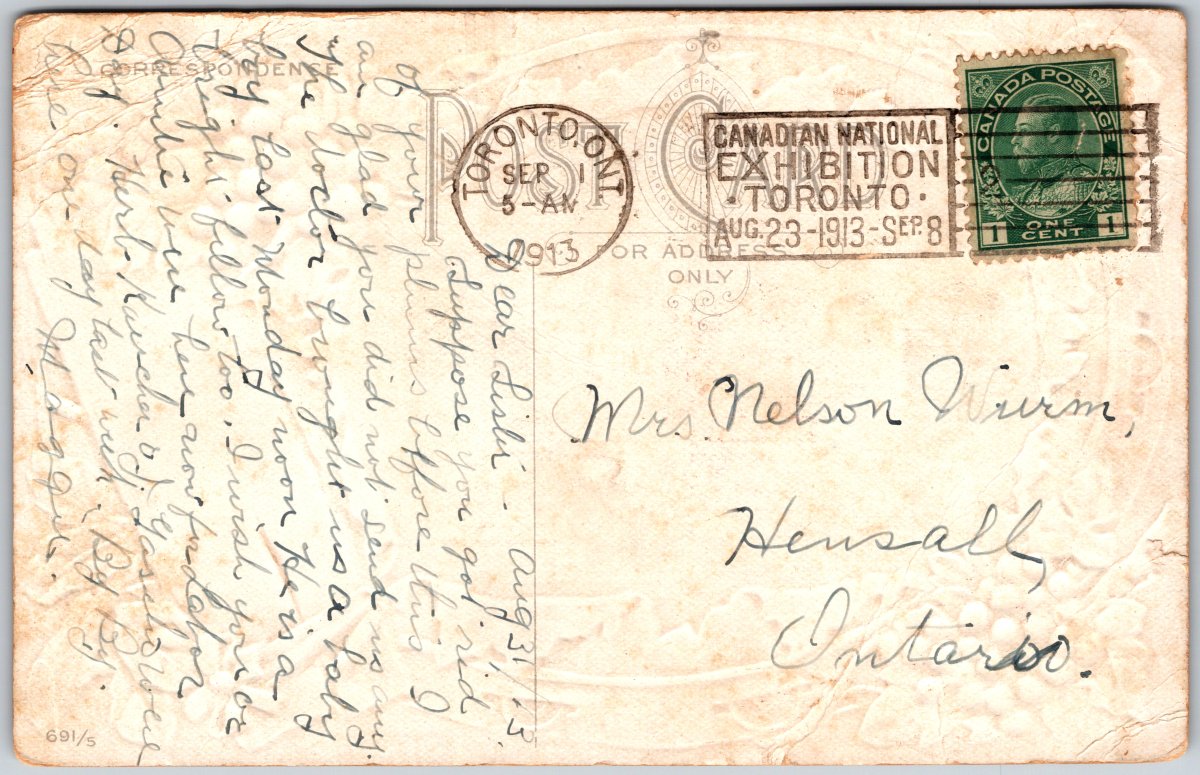 CORRESPONDENCE
POST CARD
FOR ADDRESS
ONLY
TORONTO, ONT
SEP 1
5-AM
1913
CANADIAN NATIONAL
EXHIBITION
·TORONTO·
AUG. 23-1913-SEP. 8
CANADA POSTAGE
1 ONE CENT 1
Mrs Nelson Wurm,
Hensall,
Ontario.
Aug 31/13
Dear
Suppose you got rid
of your plums before this I
am glad you did not send us any.
The doctor brought us a baby
boy last Monday noon He is a
bright fellow too. I wish you or
were here now for labor
Day. Herb. of were
here one day last week. By By.
Maggie.
691/5